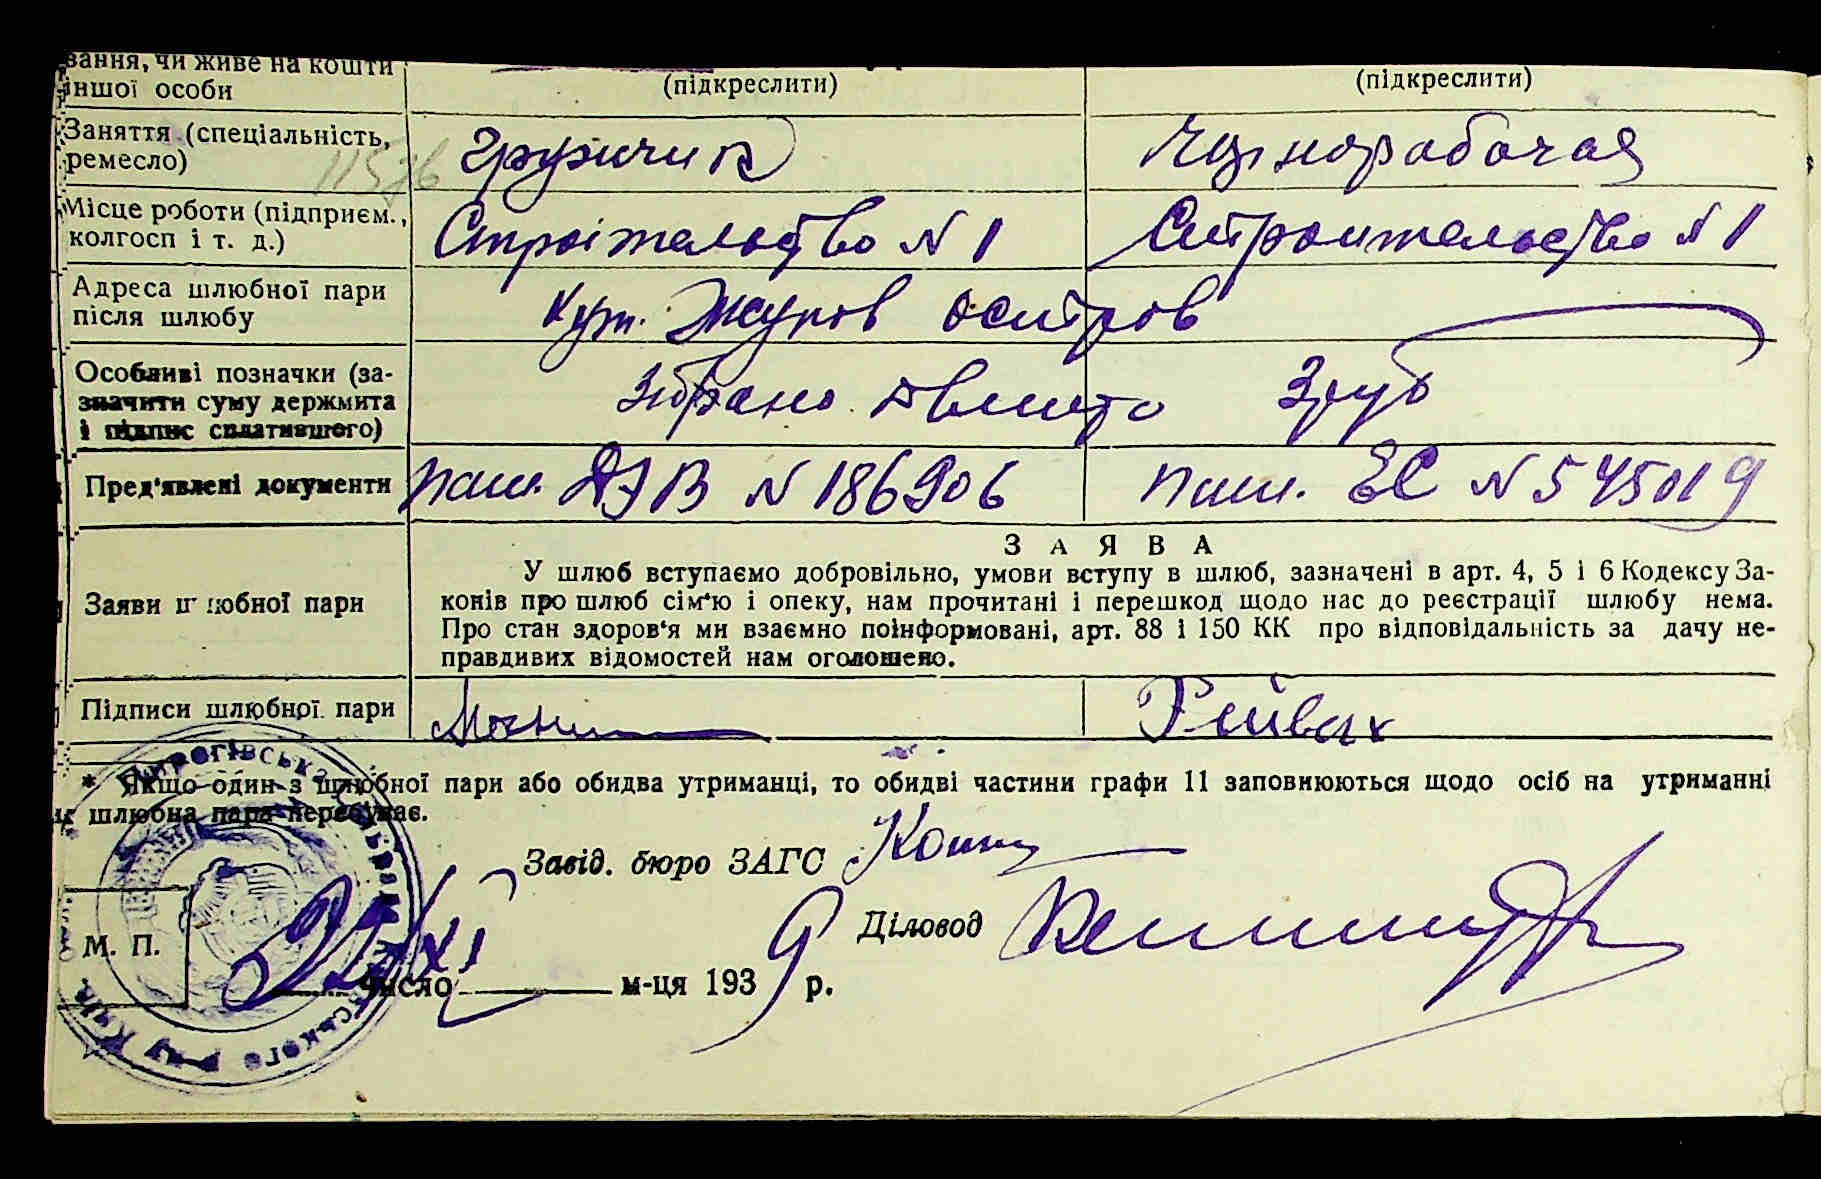 вання, чи живе на кошти
іншої особи
(підкреслити)
(підкреслити)
Заняття (спеціальність,
ремесло)
грузчик
Чернорабочая
Місце роботи (підприєм.,
колгосп і т. д.)
Строітельство N 1
Строительство N 1
Адреса шлюбної пари
після шлюбу
хут. Жуков Остров
Особливі позначки (за-
значити суму держмита
і підпис сплатившого)
Зібрано
3 руб
Пред'явлені документи
пасп. N 186906
пасп. ЕС N 545019
Заяви шлюбної пари
ЗАЯВА
У шлюб вступаємо добровільно, умови вступу в шлюб, зазначені в арт. 4, 5 і 6 Кодексу За-
конів про шлюб сім'ю і опеку, нам прочитані і перешкод щодо нас до реєстрації шлюбу нема.
Про стан здоров'я ми взаємно поінформовані, арт. 88 і 150 КК про відповідальність за дачу не-
правдивих відомостей нам оголошено.
Підписи шлюбної пари
* Якщо один з шлюбної пари або обидва утриманці, то обидві частини графи 11 заповнюються щодо осіб на утриманні
шлюбна пара перебуває.
Завід. бюро ЗАГС
Діловод
М. П.
число XI м-ця 1939 р.